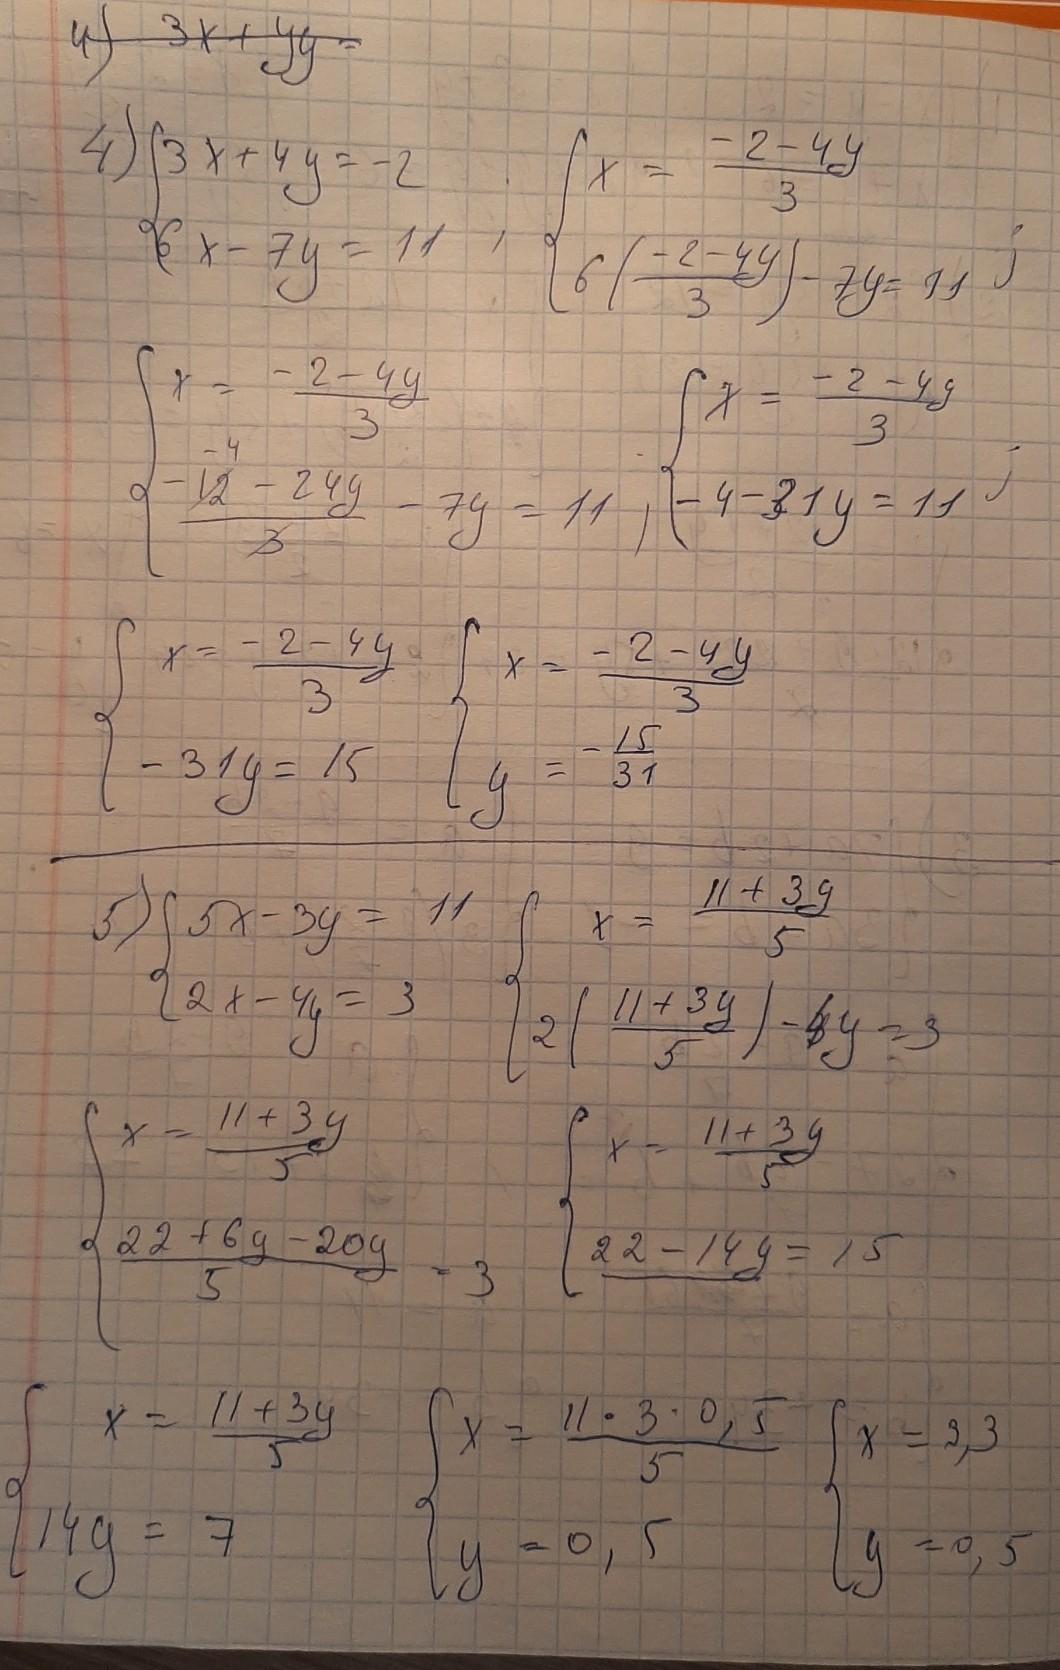 4) 3x + 4y =
4) { 3x + 4y = -2
6x - 7y = 11 ,
{ x = (-2 - 4y)/3
6((-2 - 4y)/3) - 7y = 11 ;
{ x = (-2 - 4y)/3
-4
(-12 - 24y)/3 - 7y = 11 ;
{ x = (-2 - 4y)/3
-4 - 31y = 11 ;
{ x = (-2 - 4y)/3
-31y = 15
{ x = (-2 - 4y)/3
y = -15/31
5) { 5x - 3y = 11
2x - 4y = 3
{ x = (11 + 3y)/5
2((11 + 3y)/5) - 4y = 3
{ x = (11 + 3y)/5
(22 + 6y - 20y)/5 = 3
{ x = (11 + 3y)/5
22 - 14y = 15
{ x = (11 + 3y)/5
14y = 7
{ x = (11 · 3 · 0,5)/5
y = 0,5
{ x = 3,3
y = 0,5